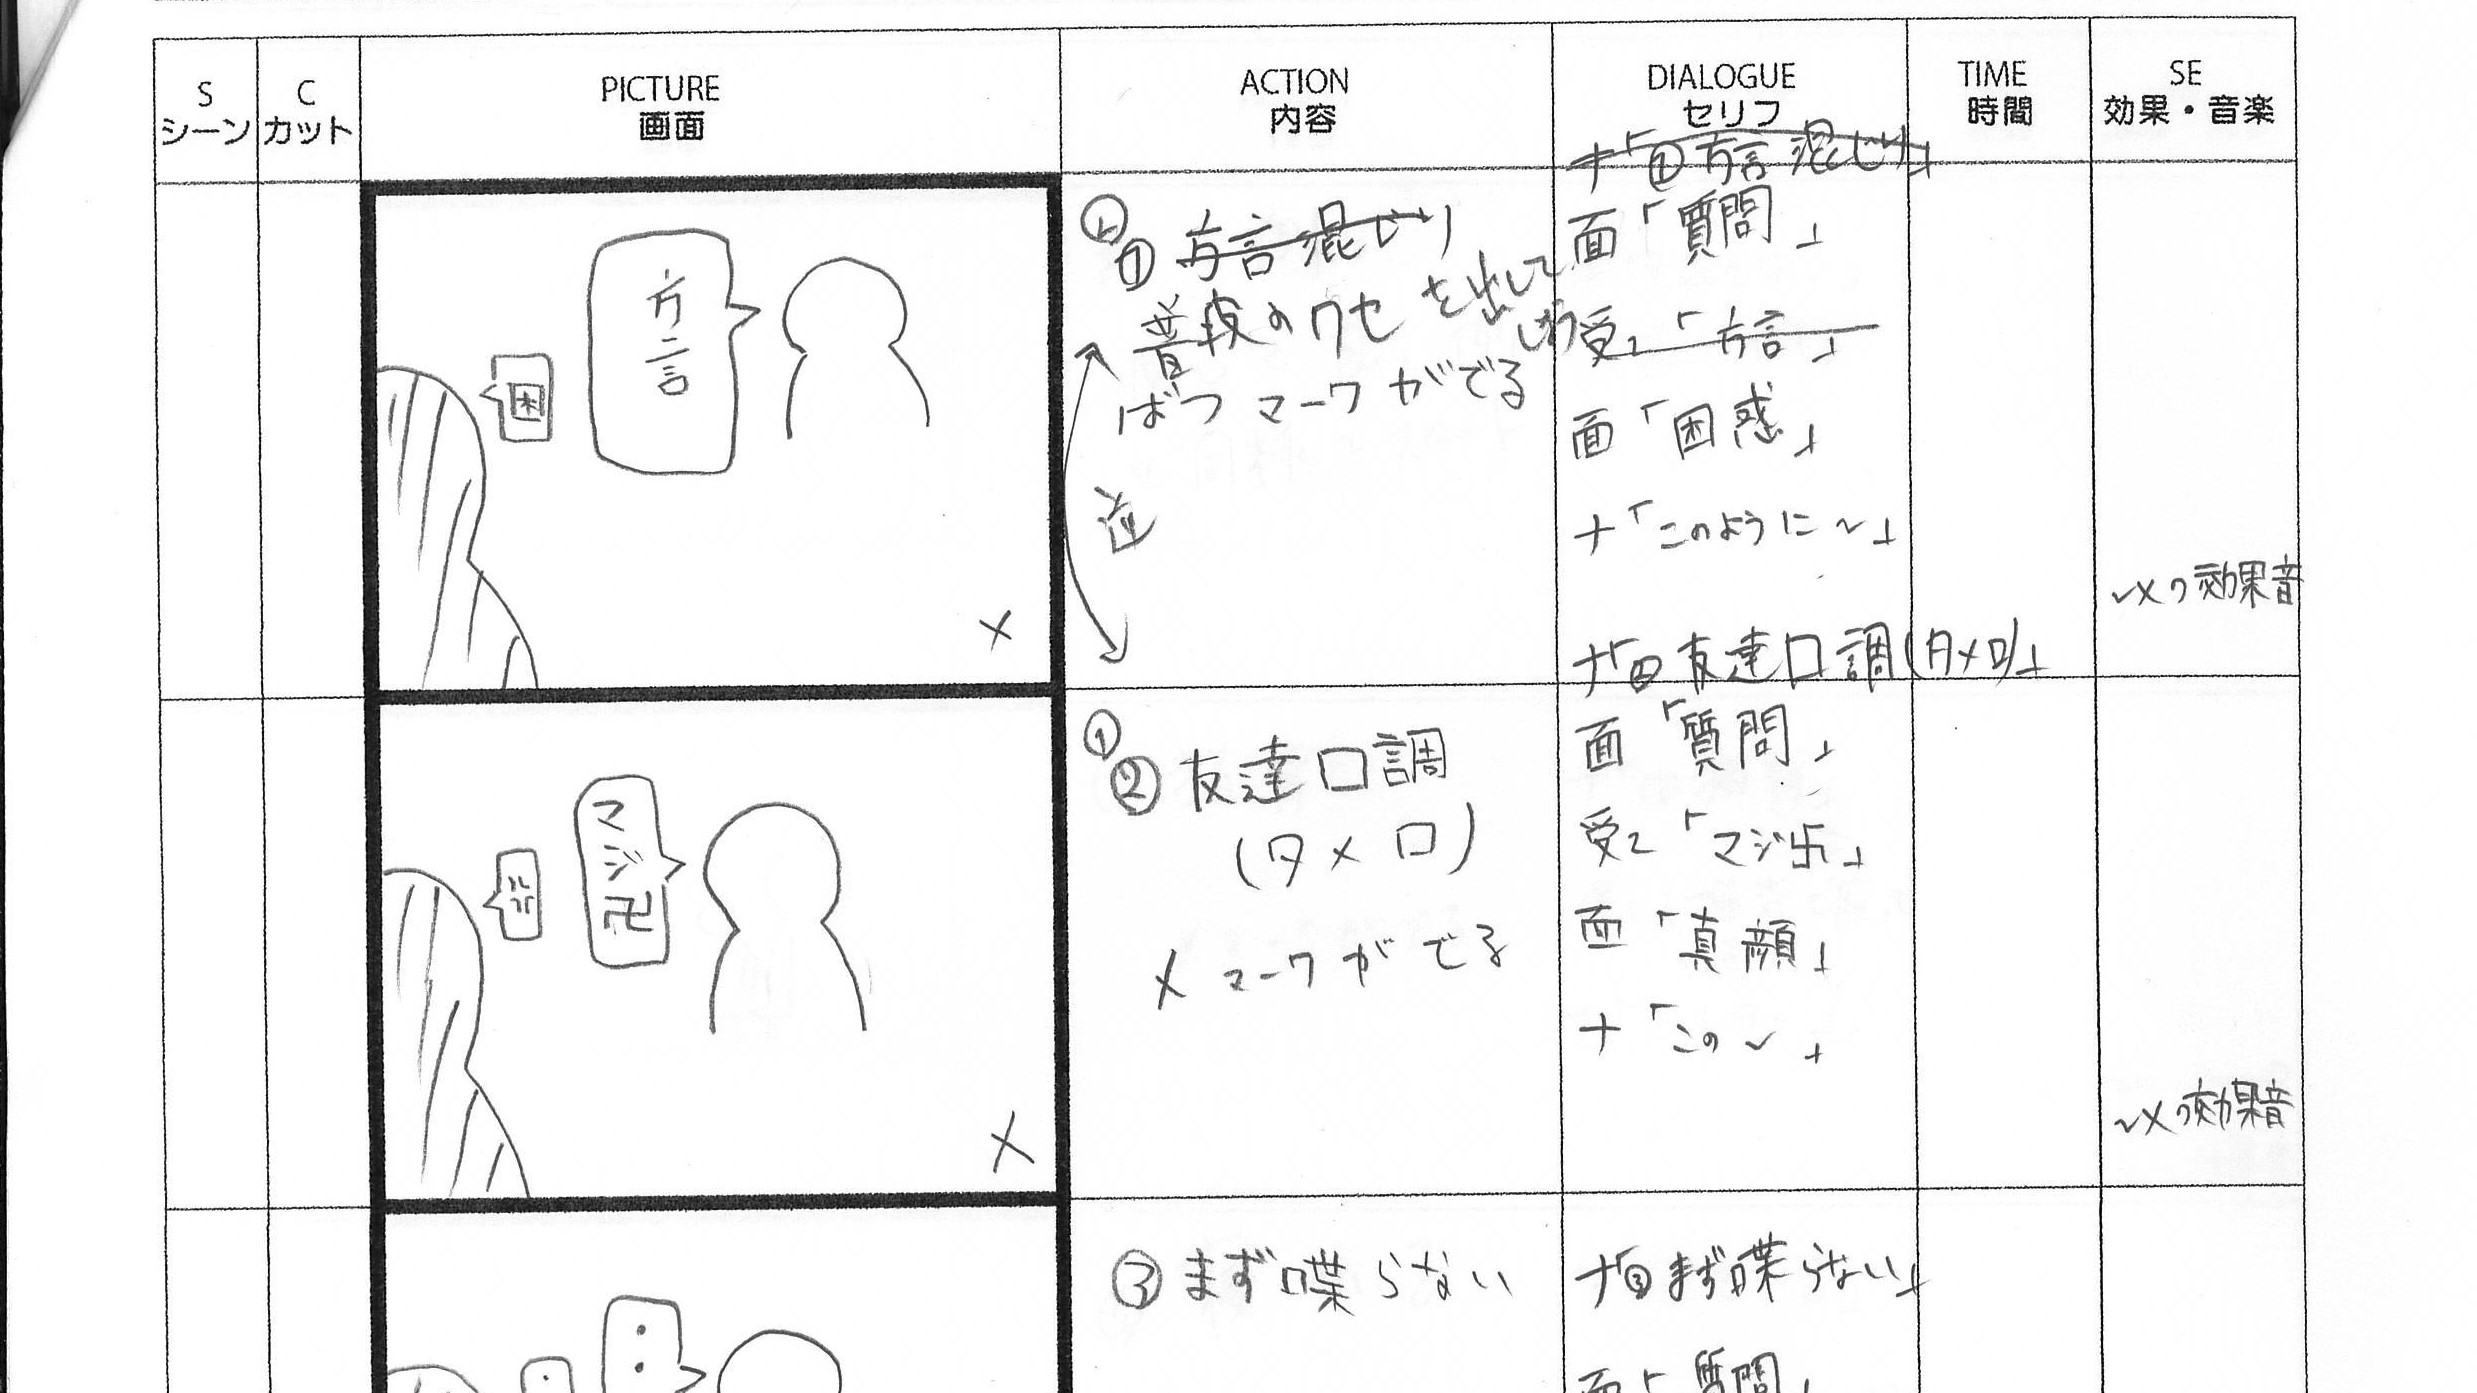 S
シーン
C
カット
PICTURE
画面
ACTION
内容
DIALOGUE
セリフ
TIME
時間
SE
効果・音楽
方言
困
②
① 方言混じり
普段のクセを出して
ばつマークがでる
逆
ナ「① 方言混じり」
面「質問」
受2「方言」
面「困惑」
ナ「このように~」
×の効果音
ナ「② 友達口調(タメ口)」
マジ卍
①
② 友達口調
(タメ口)
×マークがでる
面「質問」
受2「マジ卍」
面「真顔」
ナ「この~」
×の効果音
③ まず喋らない
ナ「③ まず喋らない」
面「質問」